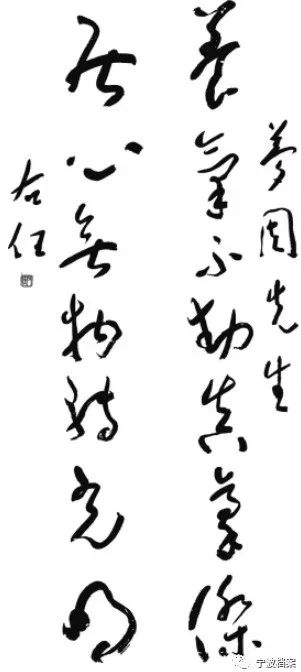 夢周先生
養氣不動真豪傑
居心無物轉光明
右任
宁波档案